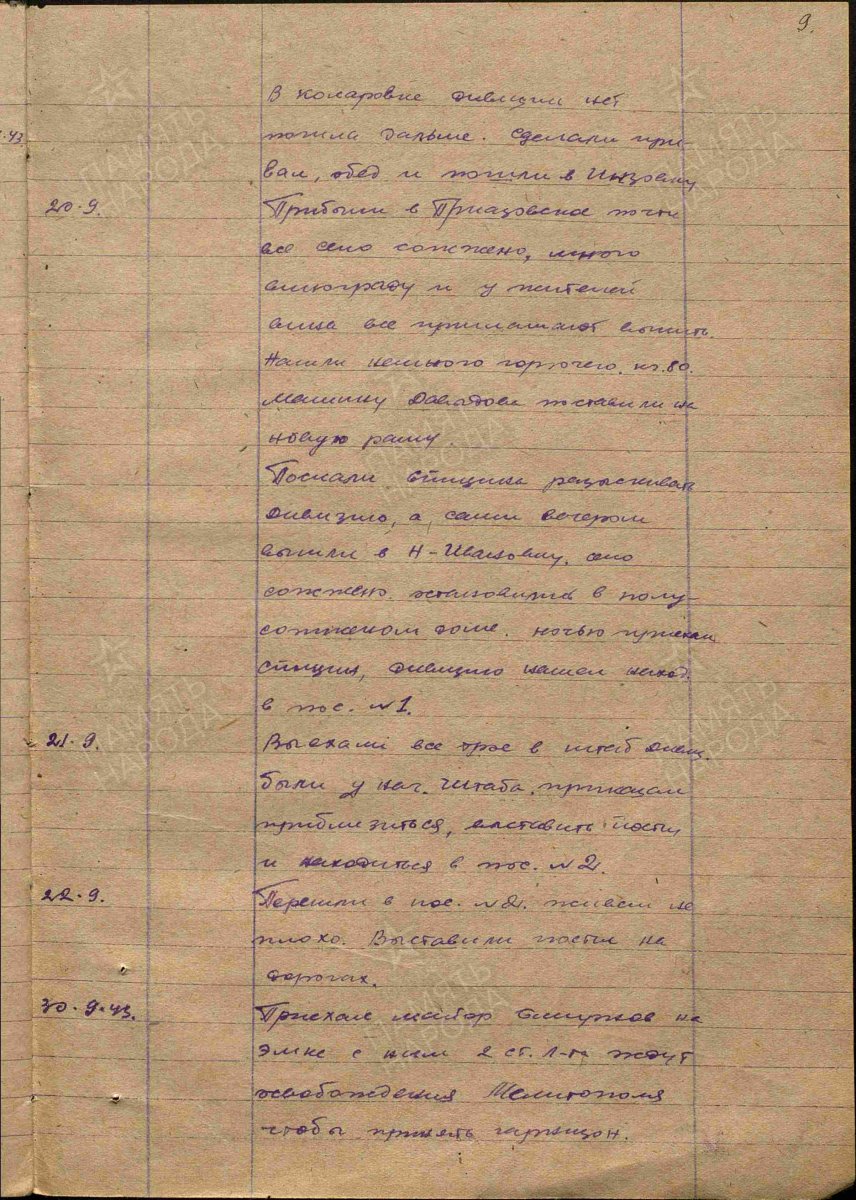 9.
В коларовке дивизии нет
пошла дальше. Сделали при-
вал, обед и пошли в Инзовку
20.9. Прибыли в Приазовское почти
все село сожжено, много
винограду и у жителей
вина все приглашают выпить.
Нашли немного горючего. кг. 80.
Машину Давыдова поставили на
новую раму.
Послали Спицина разыскивать
дивизию, а сами вечером
вышли в Н-Ивановку. село
сожжено. остановились в полу-
сожженом доме. ночью приехал
Спицин, дивизию нашел наход.
в пос. №1.
21.9. Выехали все трое в штаб дивиз.
были у нач. штаба. приказал
приблизиться, выставить посты
и находиться в пос. №2.
22.9. Перешли в пос. №2. живем не
плохо. Выставили посты на
дорогах.
30.9.43. Приехал майор на
эмке с ним 2 ст. л-та ждут
освобождения Мелитополя
чтобы принять гарнизон.
ПАМЯТЬ НАРОДА